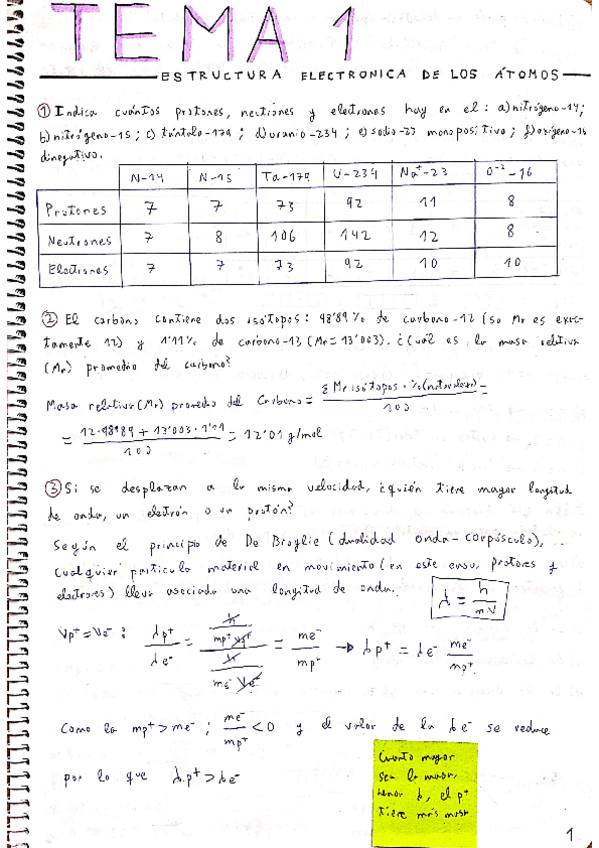 TEMA 1
ESTRUCTURA ELECTRONICA DE LOS ÁTOMOS
① Indica cuántos protones, neutrones y electrones hay en el: a) nitrógeno-14;
b) nitrógeno-15; c) tántalo-179; d) uranio-234; e) sodio-23 monopositivo; f) oxígeno-16
dinegativo.
N-14 N-15 Ta-179 U-234 Na⁺-23 O⁻²-16
Protones 7 7 73 92 11 8
Neutrones 7 8 106 142 12 8
Electrones 7 7 73 92 10 10
② El carbono contiene dos isótopos: 98'89% de carbono-12 (su Mr es exac-
tamente 12) y 1'11% de carbono-13 (Mr=13'003). ¿Cuál es la masa relativa
(Mr) promedio del carbono?
Masa relativa (Mr) promedio del Carbono = Σ Mr isótopos · % (naturaleza) / 100 =
= 12·98'89 + 13'003·1'11 / 100 = 12'01 g/mol
③ Si se desplazan a la misma velocidad, ¿quién tiene mayor longitud
de onda, un electrón o un protón?
Según el principio de De Broglie (dualidad onda-corpúsculo),
cualquier partícula material en movimiento (en este caso, protones y
electrones) lleva asociado una longitud de onda. λ = h / m·v
Vp⁺=Ve⁻ : λp⁺ / λe⁻ = (h / mp⁺·vp⁺) / (h / me⁻·ve⁻) = me⁻ / mp⁺ → λp⁺ = λe⁻ me⁻ / mp⁺
Como la mp⁺ > me⁻ ; me⁻ / mp⁺ < 0 y el valor de la λe⁻ se reduce
por lo que λp⁺ > λe⁻
Cuanto mayor
sea la masa,
menor λ, el p⁺
tiene más masa
1